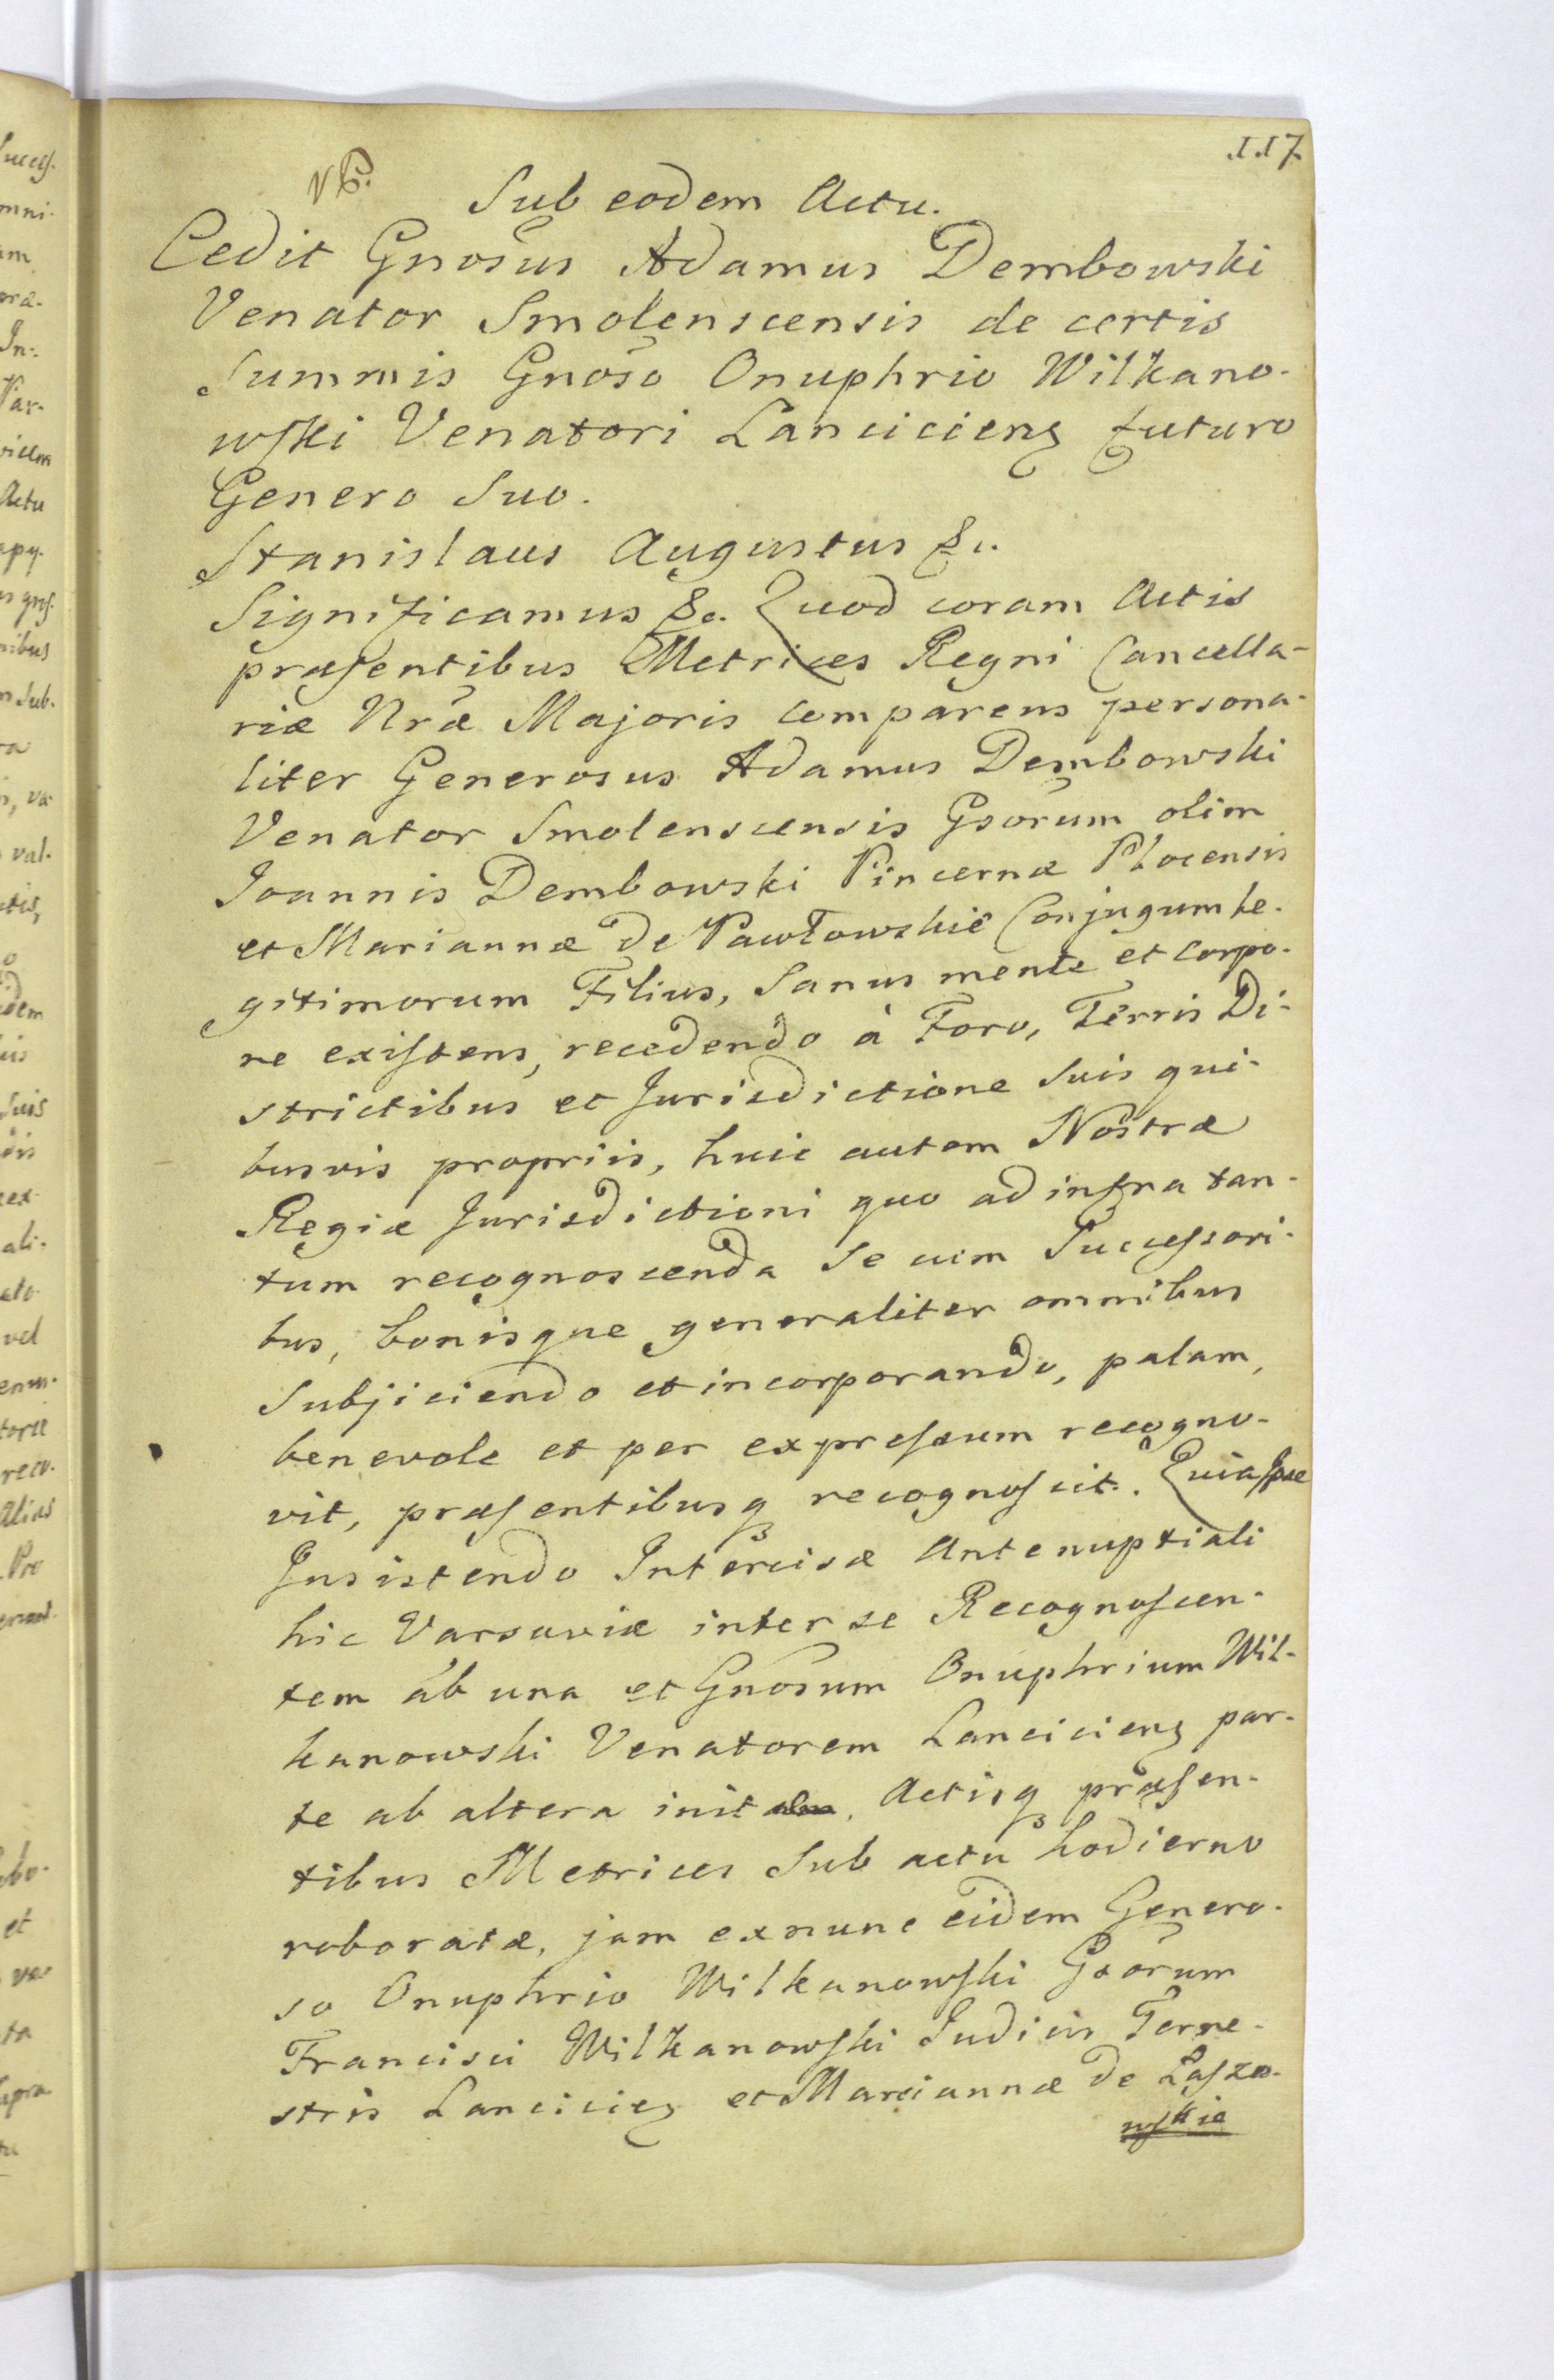 117.
NB.
Sub eodem Actu.
Cedit Gnosus Adamus Dembowski
Venator Smolenscensis de certis
Summis Gnoso Onuphrio Wilkano-
wski Venatori Lanciciens futuro
Genero Suo.
Stanislaus Augustus &c.
Significamus &c. Quod coram Actis
præsentibus Metrices Regni Cancella-
riæ Nræ Majoris comparens persona-
liter Generosus Adamus Dembowski
Venator Smolenscensis Gsorum olim
Joannis Dembowski Pincernæ Plocensis
et Mariannæ de Pawłowskie Conjugum le-
gitimorum Filius, Sanus mente et corpo-
re existens, recedendo à Foro, Terris Di-
strictibus et Jurisdictione Suis qui-
busvis propriis, huic autem Nostræ
Regiæ Jurisdictioni quo ad infra tan-
tum recognoscenda Se cum Successori-
bus, bonisque generaliter omnibus
Subjiciendo et incorporando, palam,
benevole et per expressum recogno-
vit, præsentibusq recognoscit. Quia Ipse
Insistendo Intercisæ Antenuptiali
hic Varsaviæ inter se Recognoscen-
tem ab una et Gnosum Onuphrium Wil-
kanowski Venatorem Lanciciens par-
te ab altera init Actisq præsen-
tibus Metrices Sub actu hodierno
roboratæ, jam exnunc eidem Genero-
so Onuphrio Wilkanowski Gsorum
Francisci Wilkanowski Judicis Terre-
stris Lancicien et Mariannæ de Łaszo-
wskie